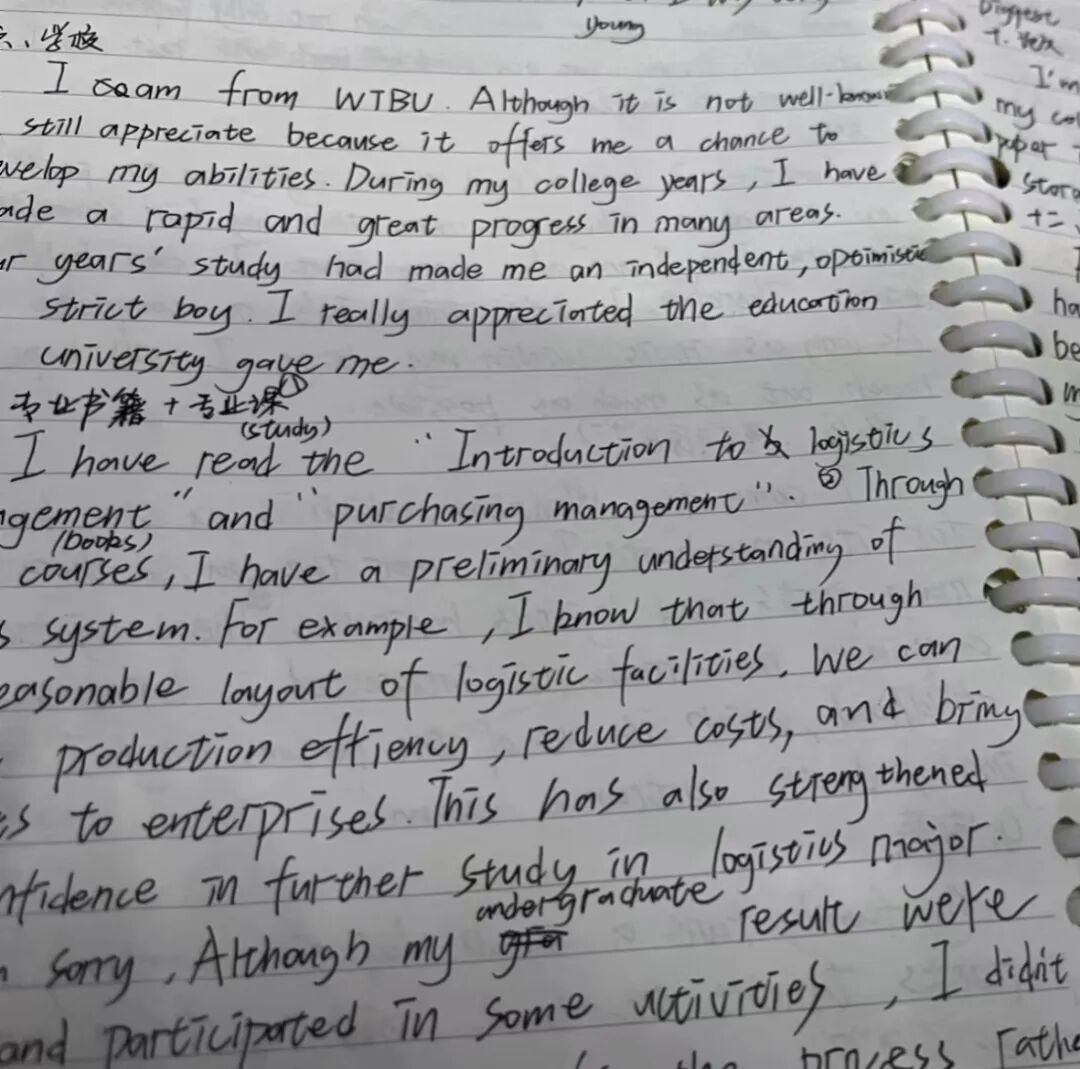 young
、学校
I am from WTBU. Although it is not well-known
still appreciate because it offers me a chance to
velop my abilities. During my college years, I have
ade a rapid and great progress in many areas.
ur years' study had made me an independent, optimistic
strict boy. I really appreciated the education
university gave me.
专业书籍 + 专业课 ①
(study)
I have read the "Introduction to logistics
ngement" and "purchasing management". ② Through
(books)
courses, I have a preliminary understanding of
s system. For example, I know that through
easonable layout of logistic facilities. We can
production effiency, reduce costs, and bring
es to enterprises. This has also strengthened
nfidence in further study in logistics major.
undergraduate
sorry, Although my result were
and participated in some activities, I didn't
process rathe
Biggest
I'm
my col
paper
store
+=
ha
be